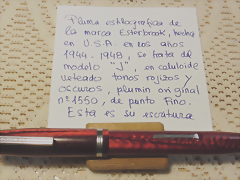 Pluma estilografica de
la marca Esterbrook, hecha
en U.S.A en los años
1944-1948, se trata del
modelo "J", en celuloide
veteado tonos rojizos y
oscuros, plumin original
nº 1550, de punto fino.
Esta es su escritura